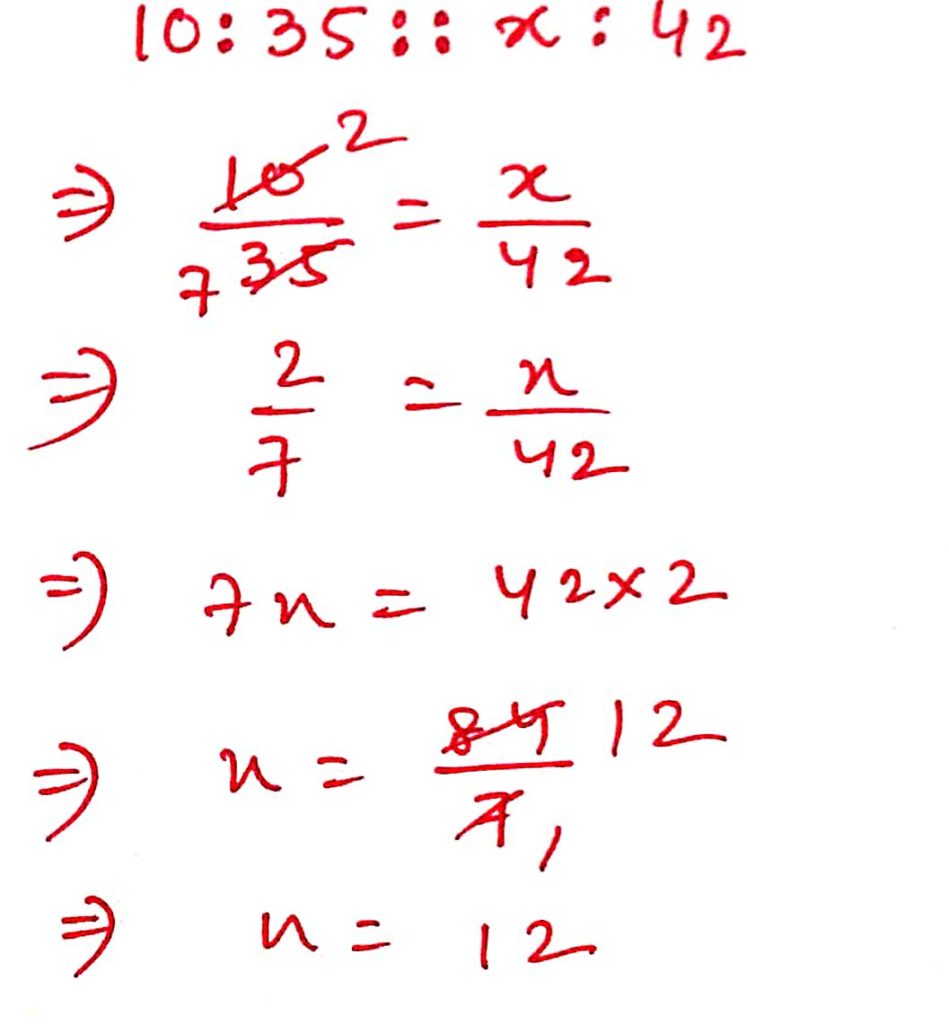 10 : 35 :: x : 42
⇒ 10 2 / 7 35 = x / 42
⇒ 2 / 7 = x / 42
⇒ 7x = 42 × 2
⇒ x = 84 12 / 7 1
⇒ x = 12